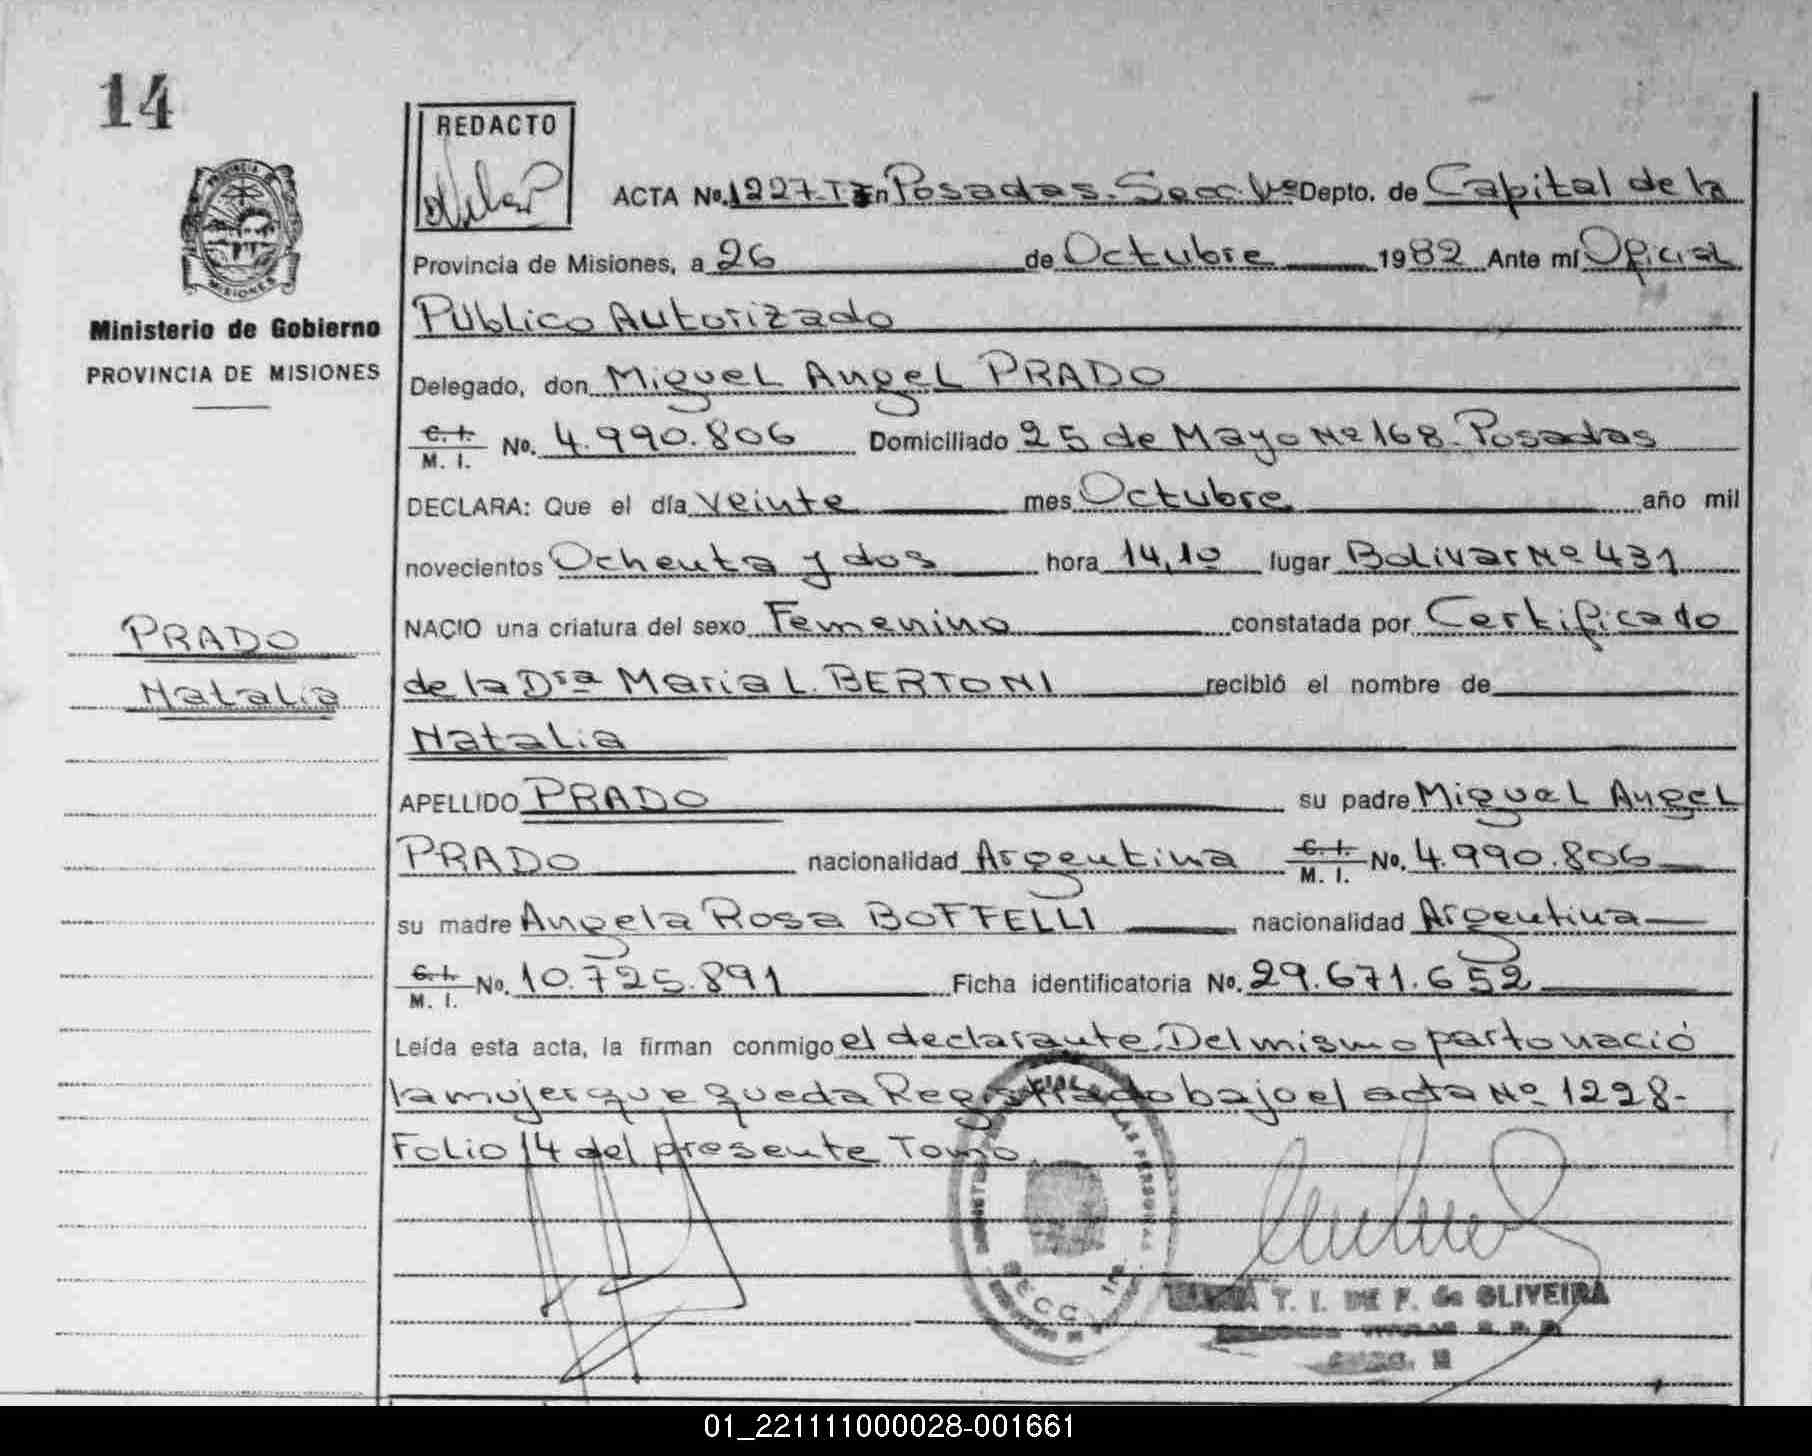 14
REDACTO
ACTA No. 1227-T I En Posadas. Secc. 1ª Depto. de Capital de la
Provincia de Misiones, a 26 de Octubre 1982 Ante mí Oficial
Público Autorizado
Ministerio de Gobierno
PROVINCIA DE MISIONES
Delegado, don Miguel Angel PRADO
C. I. M. I. No. 4.990.806 Domiciliado 25 de Mayo Nº 168. Posadas
DECLARA: Que el día veinte mes Octubre año mil
novecientos Ochenta y dos hora 14,10 lugar Bolivar Nº 431
NACIO una criatura del sexo Femenino constatada por Certificado
PRADO
Natalia
de la Dra Maria L. BERTONI recibió el nombre de
Natalia
APELLIDO PRADO su padre Miguel Angel
PRADO nacionalidad Argentina C. I. M. I. No. 4.990.806
su madre Angela Rosa BOFFELLI nacionalidad Argentina
C. I. M. I. No. 10.725.891 Ficha identificatoria No. 29.671.652
Leída esta acta, la firman conmigo el declarante. Del mismo parto nació
la mujer que queda Registrado bajo el acta Nº 1228-
Folio 14 del presente Tomo
SECC. 1ra
T. I. DE F. de OLIVEIRA
01_221111000028-001661